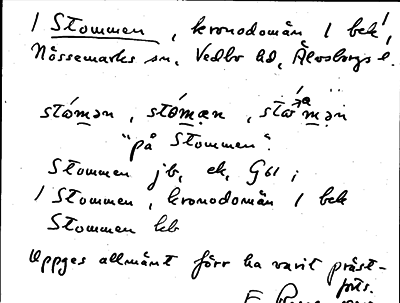 1 Stommen, kronodomän 1 bek,
Nössemarks sn, Vedbo hd, Älvsborgs l.
stómən, stómæn, stω̊mən
"på Stommen".
Stommen jb, ek, G61;
1 Stommen, kronodomän 1 bek
Stommen kb
Uppges allmänt förr ha varit präst-
forts.